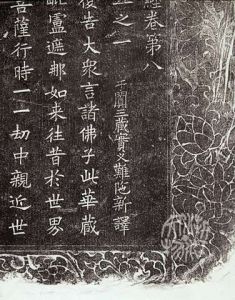 經卷第八
五之一 于闐三藏實叉難陀新譯
復告大眾言諸佛子此華藏
毗盧遮那如來往昔於世界
菩薩行時一一劫中親近世